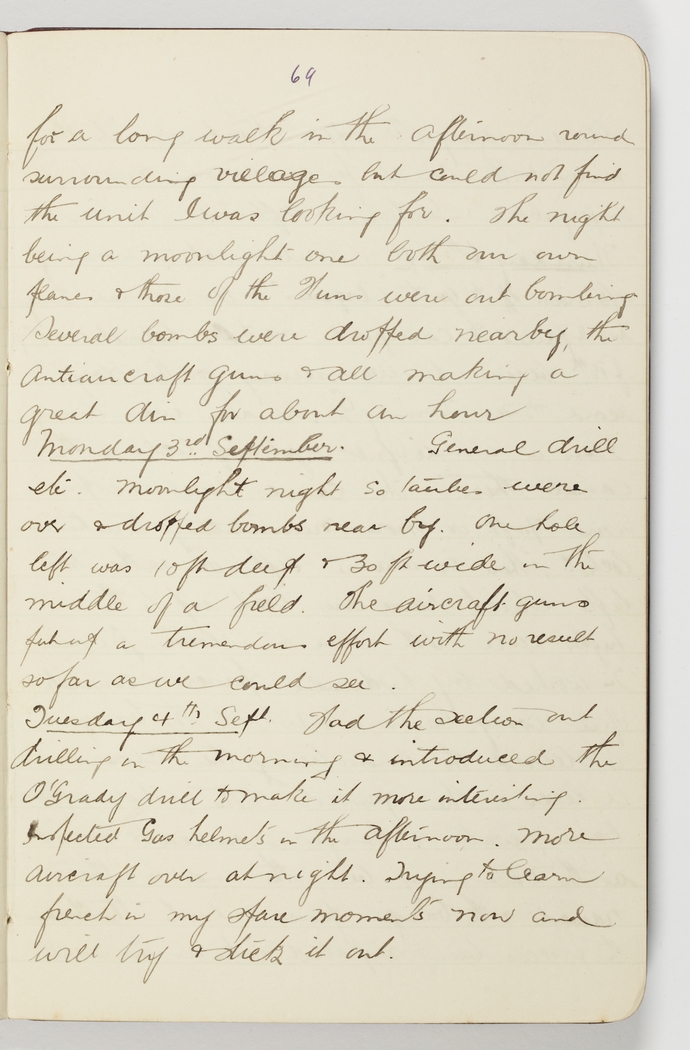 69
for a long walk in the afternoon round
surrounding villages but could not find
the unit I was looking for. The night
being a moonlight one both our own
planes & those of the Huns were out bombing
Several bombs were dropped nearby, the
Antiaircraft guns & all making a
great din for about an hour
Monday 3rd September. General drill
etc. Moonlight night so taubes were
over & dropped bombs near by. One hole
left was 10ft deep & 30 ft wide in the
middle of a field. The aircraft guns
put up a tremendous effort with no result
so far as we could see.
Tuesday 4th Sept. Had the section out
drilling in the morning & introduced the
O'Grady drill to make it more interesting.
Inspected Gas helmets in the afternoon. More
aircraft over at night. Trying to learn
french in my spare moments now and
will try & stick it out.